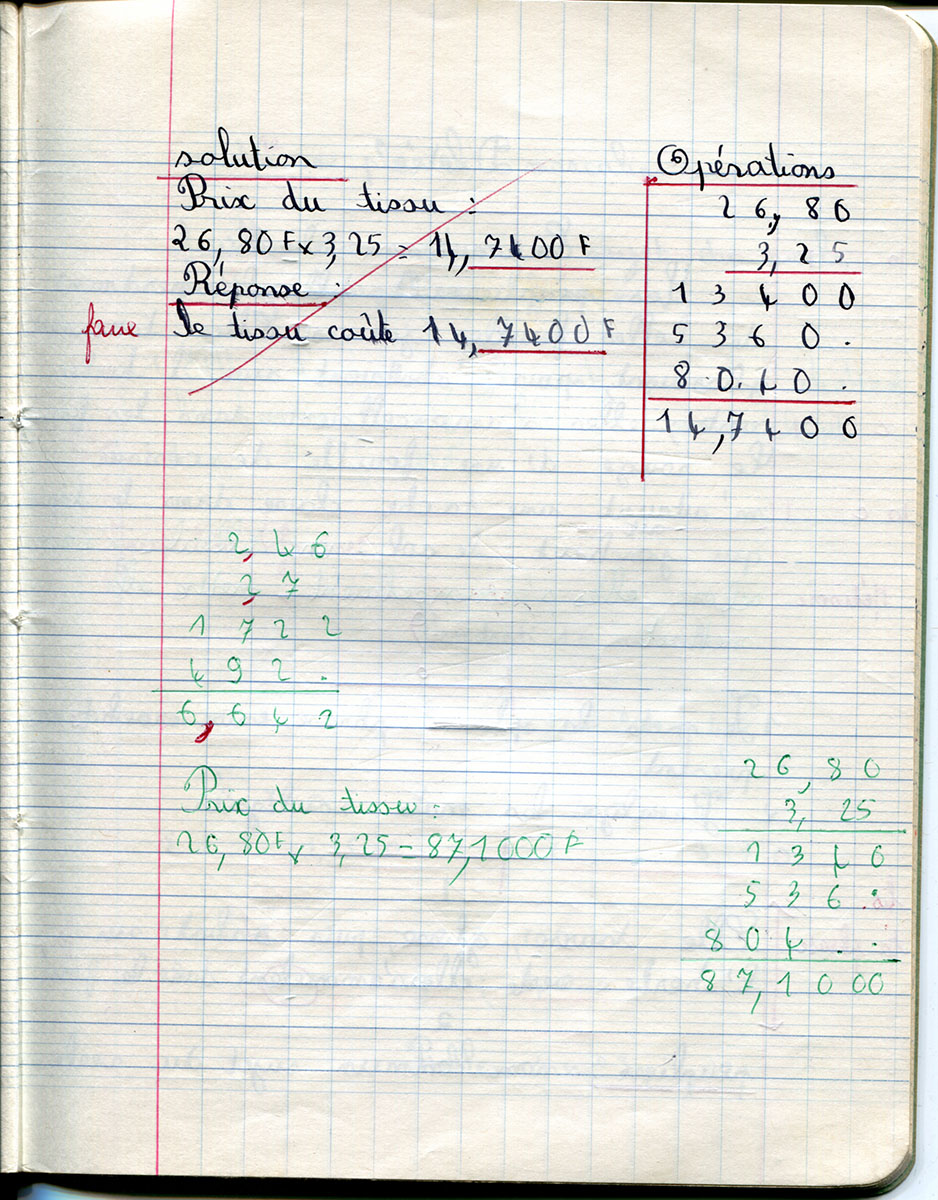 solution
Prix du tissu :
26, 80 F x 3,25 = 14, 7400 F
Réponse :
faux
le tissu coûte 14, 7400 F
Opérations
26,80
3,25
13400
5360.
8.0.40.
14,7400
2,46
2,7
1722
492.
6,642
Prix du tissu :
26, 80 F x 3,25 = 87,1000 F
26,80
3,25
1340
536.
804..
87,1000